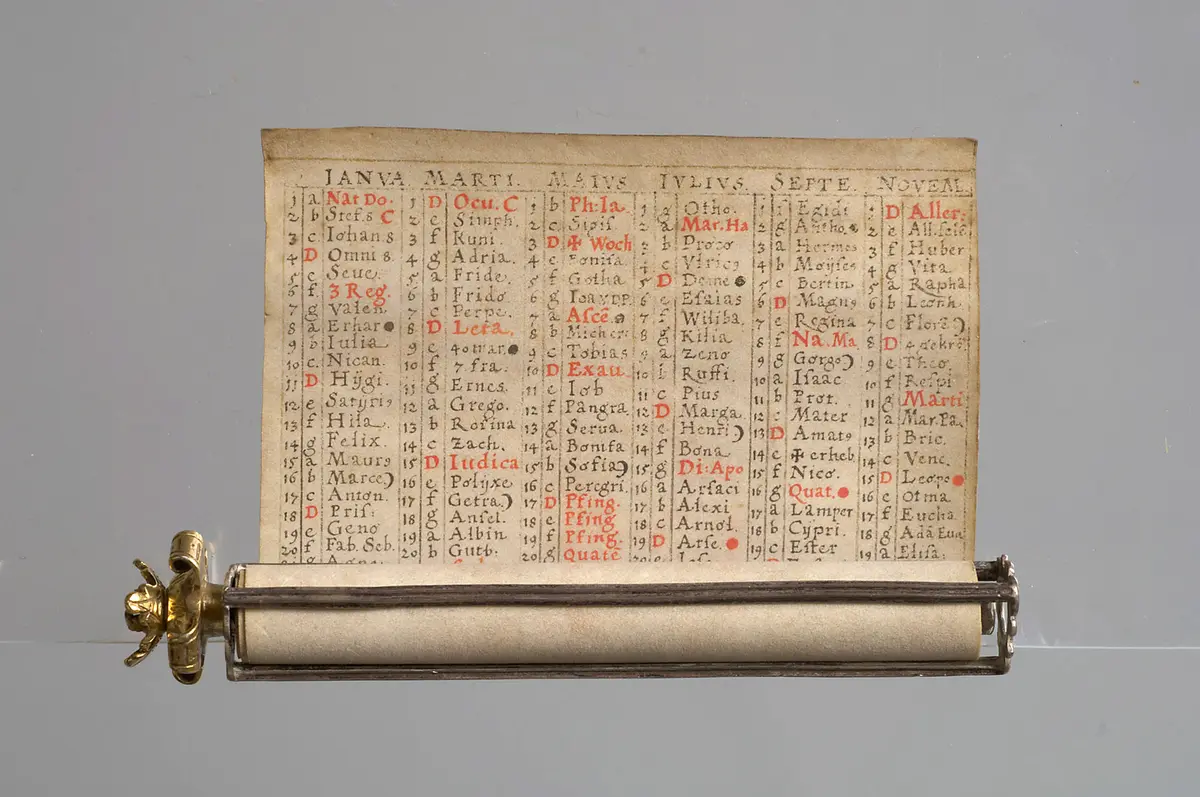 IANVA. MARTI. MAIVS IVLIVS. SEPTE. NOVEM.
1 a Nat Do. 1 D Ocu. C 1 b Ph:Ia. 1 g Otho. 1 f Egidi 1 D Aller:
2 b Stef.8 C 2 e Simph. 2 c Sigis. 2 a Mar. Ha 2 g Antho. 2 e All.
3 c Iohan 8 3 f Kuni. 3 D ✠ Woch 3 b Proco 3 a Hermes 3 f Huber
4 D Omni 8. 4 g Adria. 4 e Bonifa. 4 c Vlric9 4 b Moyses 4 g Vita
5 e Seue. 5 a Fride. 5 f Gotha 5 D Deme 5 c Bertin 5 a Rapha
6 f 3 Reg. 6 b Frido 6 g Ioa 6 e Esaias 6 D Magn9 6 b Leonh
7 g Valen. 7 c Perpe. 7 a Ascē. 7 f Wiliba. 7 e Regina 7 c Florē
8 a Erhar 8 D Leta. 8 b Michere 8 g Kilia 8 f Na. Ma 8 D 4 gekrö
9 b Iulia 9 e 40 mar. 9 c Tobias 9 a Zeno 9 g Gorgo 9 e Theo.
10 c Nican. 10 f 7 fra. 10 D Exau. 10 b Ruffi. 10 a Isaac 10 f Respi
11 D Hÿgi. 11 g Ernes. 11 e Iob 11 c Pius 11 b Prot. 11 g Marti
12 e Satyri9 12 a Grego. 12 f Pangra. 12 D Marga. 12 c Mater 12 a Mar. Pa.
13 f Hila. 13 b Rosina 13 g Serua. 13 e Henri 13 D Amat9 13 b Bric.
14 g Felix. 14 c Zach. 14 a Bonifa 14 f Bona 14 e ✠ erheb. 14 c Vene.
15 a Maur9 15 D Iudica 15 b Sofia 15 g Di: Apo 15 f Nico. 15 D Leopo
16 b Marce 16 e Polÿxe 16 c Peregri. 16 a Arsaci 16 g Quat. 16 e Otma
17 c Anton. 17 f Getra 17 D Pfing. 17 b Alexi 17 a Lamper 17 f Eucha.
18 D Pris: 18 g Ansel. 18 e Pfing. 18 c Arnol. 18 b Cypri. 18 g Adā Eua
19 e Geno 19 a Albin 19 f Pfing. 19 D Arse. 19 c Ester 19 a Elisa.
20 f Fab. Seb. 20 b Gutb. 20 g Quatē